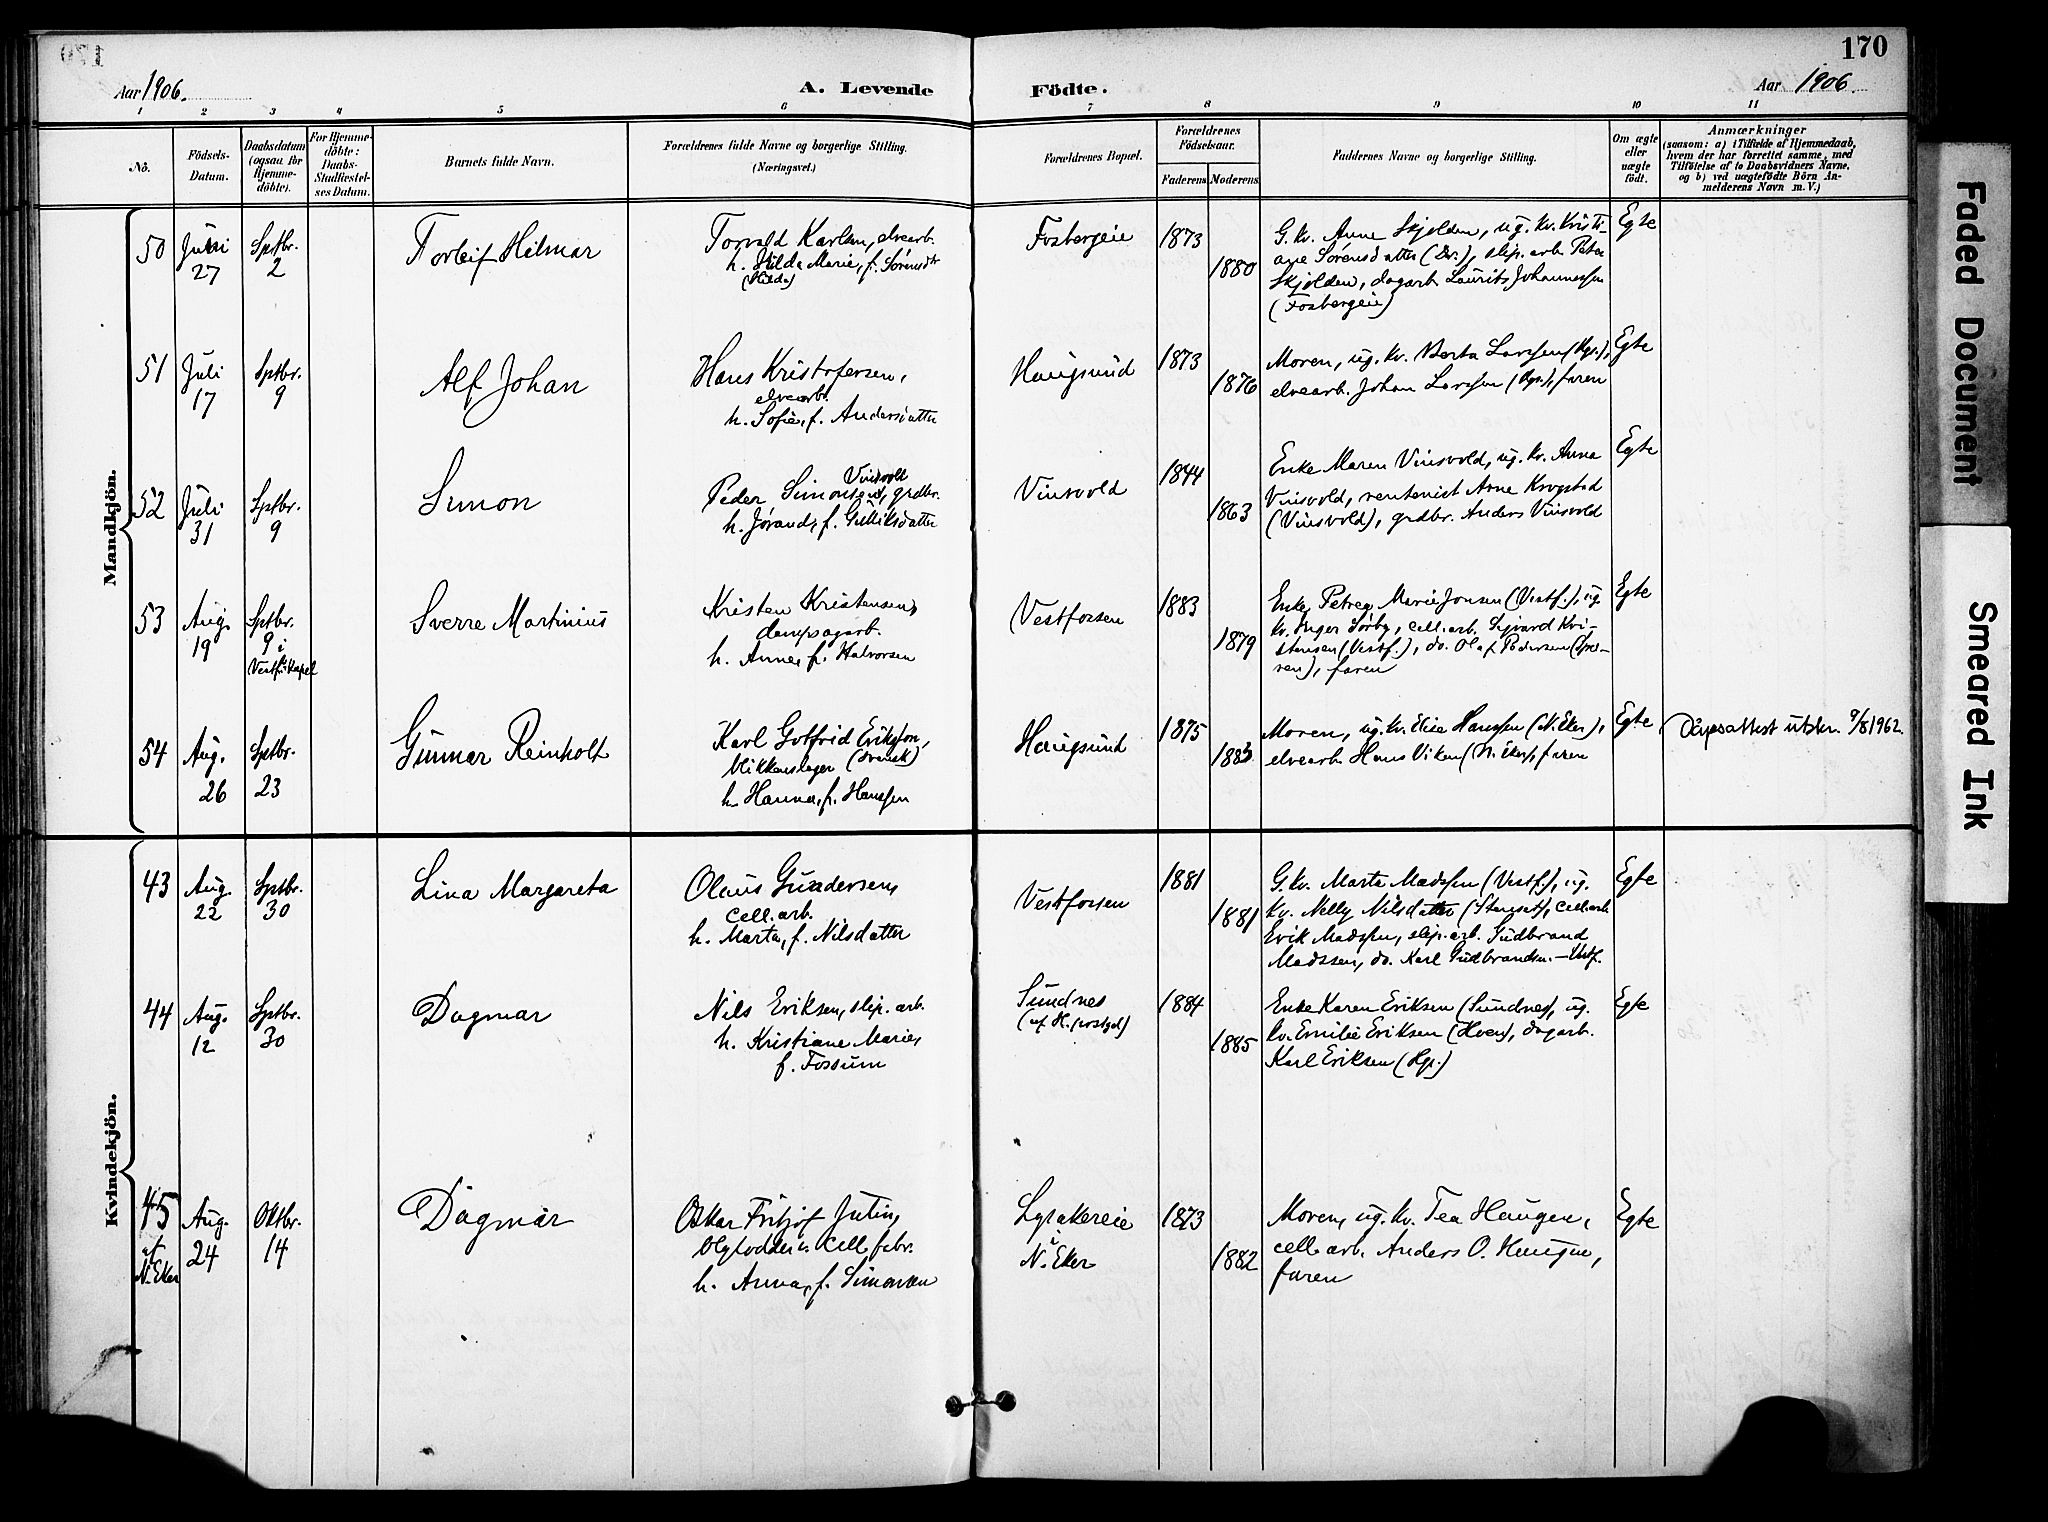 170
Aar 1906.
A. Levende Födte.
Aar 1906.
1 2 3 4 5 6 7 8 9 10 11
No.
Födsels-
Datum.
Daabsdatum
(ogsaa for
Hjemme-
döbte).
For Hjemme-
döbte:
Daabs-
Stadfæstel-
ses Datum.
Barnets fulde Navn.
Forældrenes fulde Navne og borgerlige Stilling.
(Næringsvei.)
Forældrenes Bopæl.
Forældrenes
Födselsaar.
Faderens
Moderens
Faddernes Navne og borgerlige Stilling.
Om ægte
eller
uægte
födt.
Anmærkninger
(saasom: a) i Tilfælde af Hjemmedaab,
hvem der har forrettet samme, med
Tilföielse af to Daabsvidners Navne,
og b) ved uægtefödte Börn An-
melderens Navn m. V.)
Mandkjön.
50
27
Sptbr.
2
Torleif Hilmar
Torvald Karlsen, elvearb.
h. Hilda Marie, f. Sørensdtr
(Hilda)
Fosbergeie
1873
1880
G. kv. Anne Skjølden, ug. kv. Kristi-
ane Sørensdatter (Dr.), slip. arb. Peter
Skjølden, dagarb. Laurits Johannessen
(Fosbergeie)
Egte
51
Juli
17
Sptbr.
9
Alf Johan
Hans Kristofersen,
elvearb.
h. Sofie, f. Andersdatter
Haugsund
1873
1876
Moren, ug. kv. Berta Larssen
elvearb. Johan Larssen faren
Egte
52
Juli
31
Sptbr.
9
Simon
Vinsvold
Peder Simonsen, grdbr.
h. Jørand, f. Gulliksdatter
Vinsvold
1844
1863
Enke Maren Vinsvold, ug. kv. Anna
Vinsvold, rentenist Arne Krogstad
(Vinsvold), grdbr. Anders Vinsvold
Egte
53
Aug.
19
Sptbr.
9 i
Vestf. kapel
Sverre Martinius
Kristen Kristensen,
dampsagarb.
h. Anne, f. Halvorsen
Vestfossen
1883
1879
Enke Petrea Marie Jonsen (Vestf.), ug.
kv. Inger Sørby, cell. arb. Sigvard Kri-
stensen (Vestf.), do. Olaf Pedersen
faren
Egte
54
Aug.
26
Sptbr.
23
Gunnar Reinholt
Karl Gotfrid Erikson,
blikkenslager (svensk)
h. Hanna, f. Hanssen
Haugsund
1875
1883
Moren, ug. kv. Elise Hanssen (N. Eker),
elvearb. Hans Viken (N. Eker), faren
Egte
Dåpsattest utstr. 9/8 1962.
Kvindekjön.
43
Aug.
22
Sptbr.
30
Lina Margareta
Olaus Gundersen,
cell. arb.
h. Marta, f. Nilsdatter
Vestfossen
1881
1881
G. kv. Marta Madssen (Vestf.), ug.
kv. Nelly Nilsdatter cell. arb.
Erik Madssen, slip. arb. Gudbrand
Madssen, do. Karl Gudbrandsen. – Vestf.
Egte
44
Aug.
12
Sptbr.
30
Dagmar
Nils Eriksen, slip. arb.
h. Kristiane Marie,
f. Fossum
Sundnes
1884
1885
Enke Karen Eriksen (Sundnes), ug.
kv. Emilie Eriksen (Hoen), dagarb.
Karl Eriksen
Egte
45
af
N. Eker
Aug.
24
Oktbr.
14
Dagmar
Oskar Fritjof Julin,
cell. fabr.
h. Anna, f. Simonsen
i
N. Eker
1873
1882
Moren, ug. kv. Tea Haugen,
cell. arb. Anders O. Haugen,
faren
Egte
Faded Document
Smeared Ink